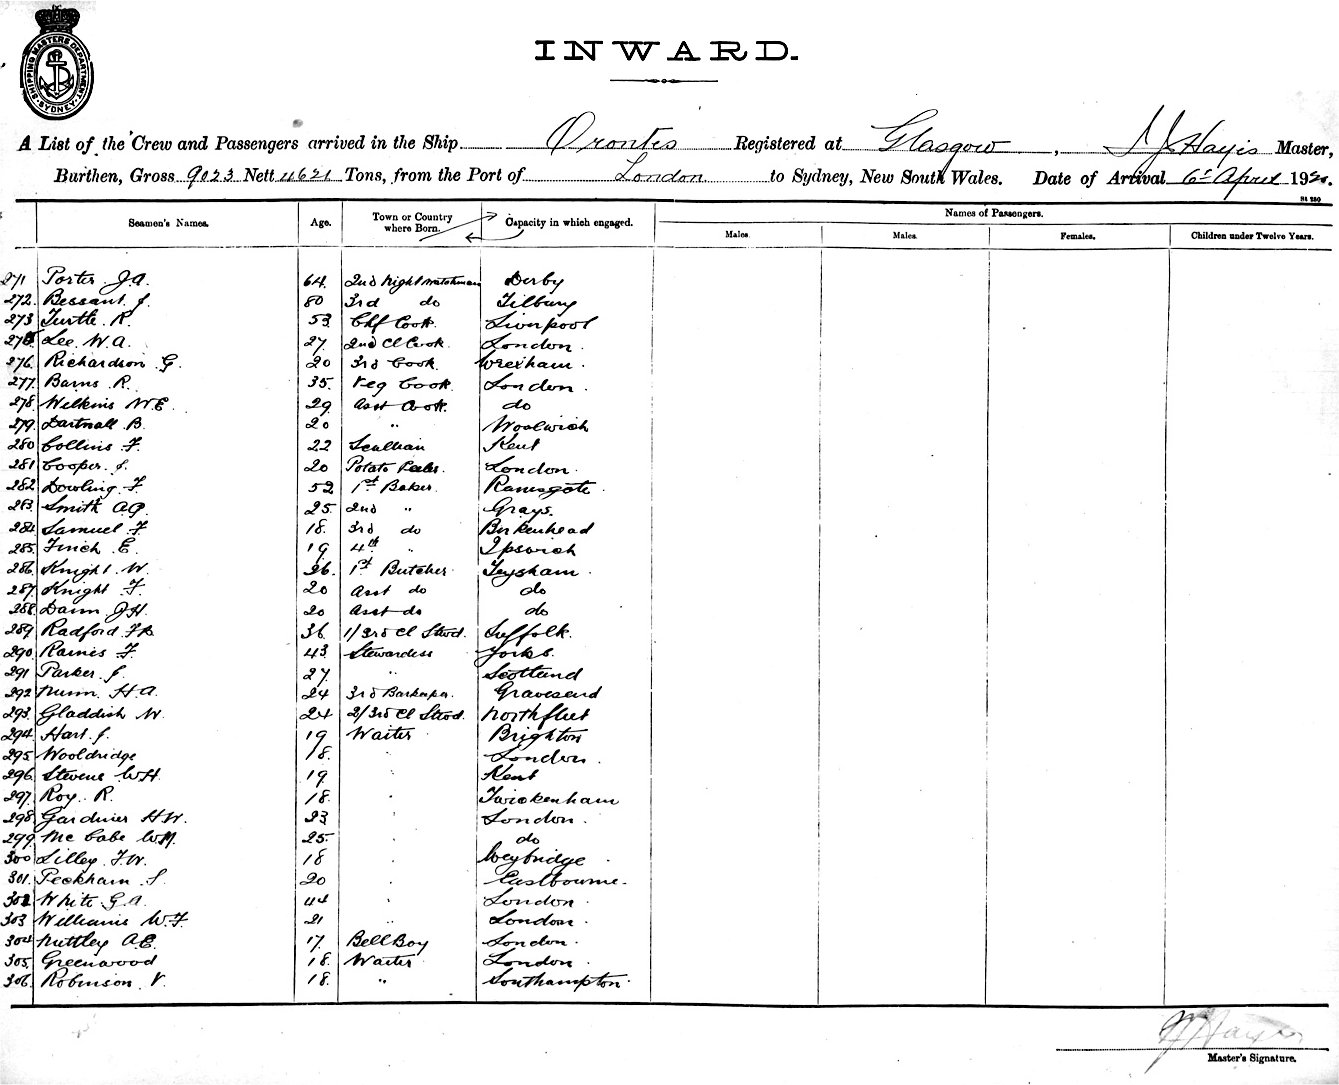 SHIPPING MASTERS DEPARTMENT SYDNEY
INWARD.
A List of the Crew and Passengers arrived in the Ship Orontes Registered at Glasgow, Hayes Master,
Burthen, Gross 9023 Nett 4621 Tons, from the Port of London to Sydney, New South Wales. Date of Arrival 6 April 192
Seamen's Names. Age. Town or Country where Born. Capacity in which engaged. Names of Passengers.
Males. Males. Females. Children under Twelve Years.
271 Porter J.A. 64. 2nd Nightwatchman Derby
272. Bessant J. 80 3rd do Tilbury
273 Turtle R. 53 Chf Cook. Liverpool
275 Lee W.A. 27 2nd Cl Cook. London.
276. Richardson G. 20 3rd Cook. Wrexham.
277. Barns R. 35. Veg Cook. London.
278. Wilkins W.E. 29 Asst Cook. do
279. Dartnall B. 20 " Woolwich
280 Collins F. 22 Scullian Kent
281 Cooper J. 20 Potato Peeler. London.
282 Dowling F. 52 1st Baker. Ramsgate.
283 Smith A.G. 25 2nd " Grays.
284 Samuel F 18. 3rd do Birkenhead
285. Finch E. 19 4th " Ipswich
286. Knight W. 26. 1st Butcher Teysham.
287. Knight F. 20 Asst do do
288. Dann J.H. 20 Asst do do
289. Radford 36. 1/3rd Cl Stwd. Suffolk.
290. Raines F 43 Stewardess Yorks.
291 Parker J. 27. " Scotland
292 Nunn H.A. 24 3rd Barkeeper. Gravesend
293. Gladdish W. 24 2/3rd Cl Stwd. Northfleet
294. Hart J. 19 Waiter Brighton
295 Wooldridge 18. " London.
296. Stevens W.H. 19. " Kent
297. Roy. R. 18. " Twickenham
298. Gardiner H.W. 23 " London.
299. McCabe W.M. 25. " do
300 Lilley F.W. 18 " Weybridge
301. Peckham S. 20 " Eastbourne.
302 White G.A. 44 " London.
303 Williams W.F. 21 " London.
304 Nuttley A.E. 17. Bell Boy London.
305. Greenwood 18. Waiter London.
306. Robinson V. 18. " Southampton.
Hayes
Master's Signature.